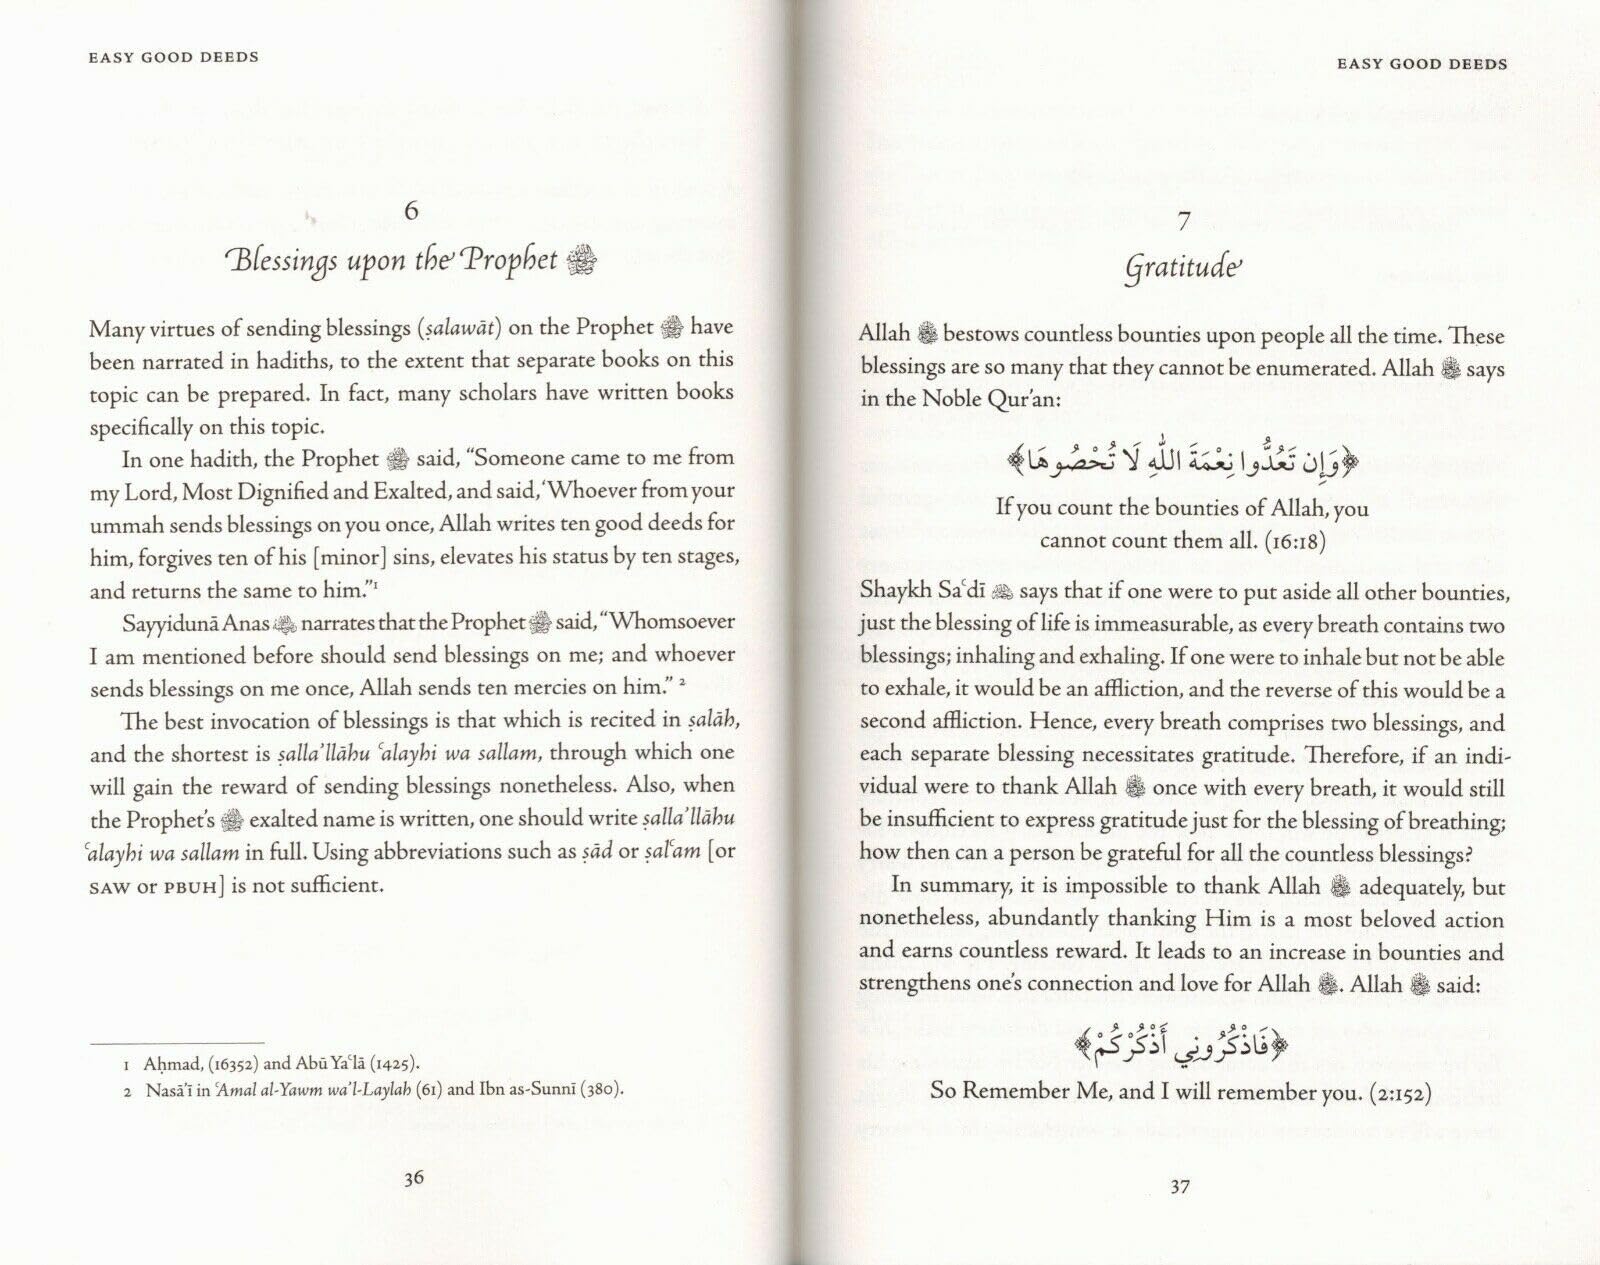 EASY GOOD DEEDS
6
Blessings upon the Prophet ﷺ
Many virtues of sending blessings (ṣalawāt) on the Prophet ﷺ have
been narrated in hadiths, to the extent that separate books on this
topic can be prepared. In fact, many scholars have written books
specifically on this topic.
In one hadith, the Prophet ﷺ said, “Someone came to me from
my Lord, Most Dignified and Exalted, and said, ‘Whoever from your
ummah sends blessings on you once, Allah writes ten good deeds for
him, forgives ten of his [minor] sins, elevates his status by ten stages,
and returns the same to him.”1
Sayyidunā Anas narrates that the Prophet ﷺ said, “Whomsoever
I am mentioned before should send blessings on me; and whoever
sends blessings on me once, Allah sends ten mercies on him.” 2
The best invocation of blessings is that which is recited in ṣalāh,
and the shortest is ṣalla’llāhu ʿalayhi wa sallam, through which one
will gain the reward of sending blessings nonetheless. Also, when
the Prophet’s ﷺ exalted name is written, one should write ṣalla’llāhu
ʿalayhi wa sallam in full. Using abbreviations such as ṣād or ṣalʿam [or
SAW or PBUH] is not sufficient.
1 Aḥmad, (16352) and Abū Yaʿlā (1425).
2 Nasā’ī in ʿAmal al-Yawm wa’l-Laylah (61) and Ibn as-Sunnī (380).
36
EASY GOOD DEEDS
7
Gratitude
Allah bestows countless bounties upon people all the time. These
blessings are so many that they cannot be enumerated. Allah says
in the Noble Qur’an:
﴿وَإِن تَعُدُّوا نِعْمَةَ اللَّهِ لَا تُحْصُوهَا﴾
If you count the bounties of Allah, you
cannot count them all. (16:18)
Shaykh Saʿdī says that if one were to put aside all other bounties,
just the blessing of life is immeasurable, as every breath contains two
blessings; inhaling and exhaling. If one were to inhale but not be able
to exhale, it would be an affliction, and the reverse of this would be a
second affliction. Hence, every breath comprises two blessings, and
each separate blessing necessitates gratitude. Therefore, if an indi-
vidual were to thank Allah once with every breath, it would still
be insufficient to express gratitude just for the blessing of breathing;
how then can a person be grateful for all the countless blessings?
In summary, it is impossible to thank Allah adequately, but
nonetheless, abundantly thanking Him is a most beloved action
and earns countless reward. It leads to an increase in bounties and
strengthens one’s connection and love for Allah. Allah said:
﴿فَاذْكُرُونِي أَذْكُرْكُمْ﴾
So Remember Me, and I will remember you. (2:152)
37